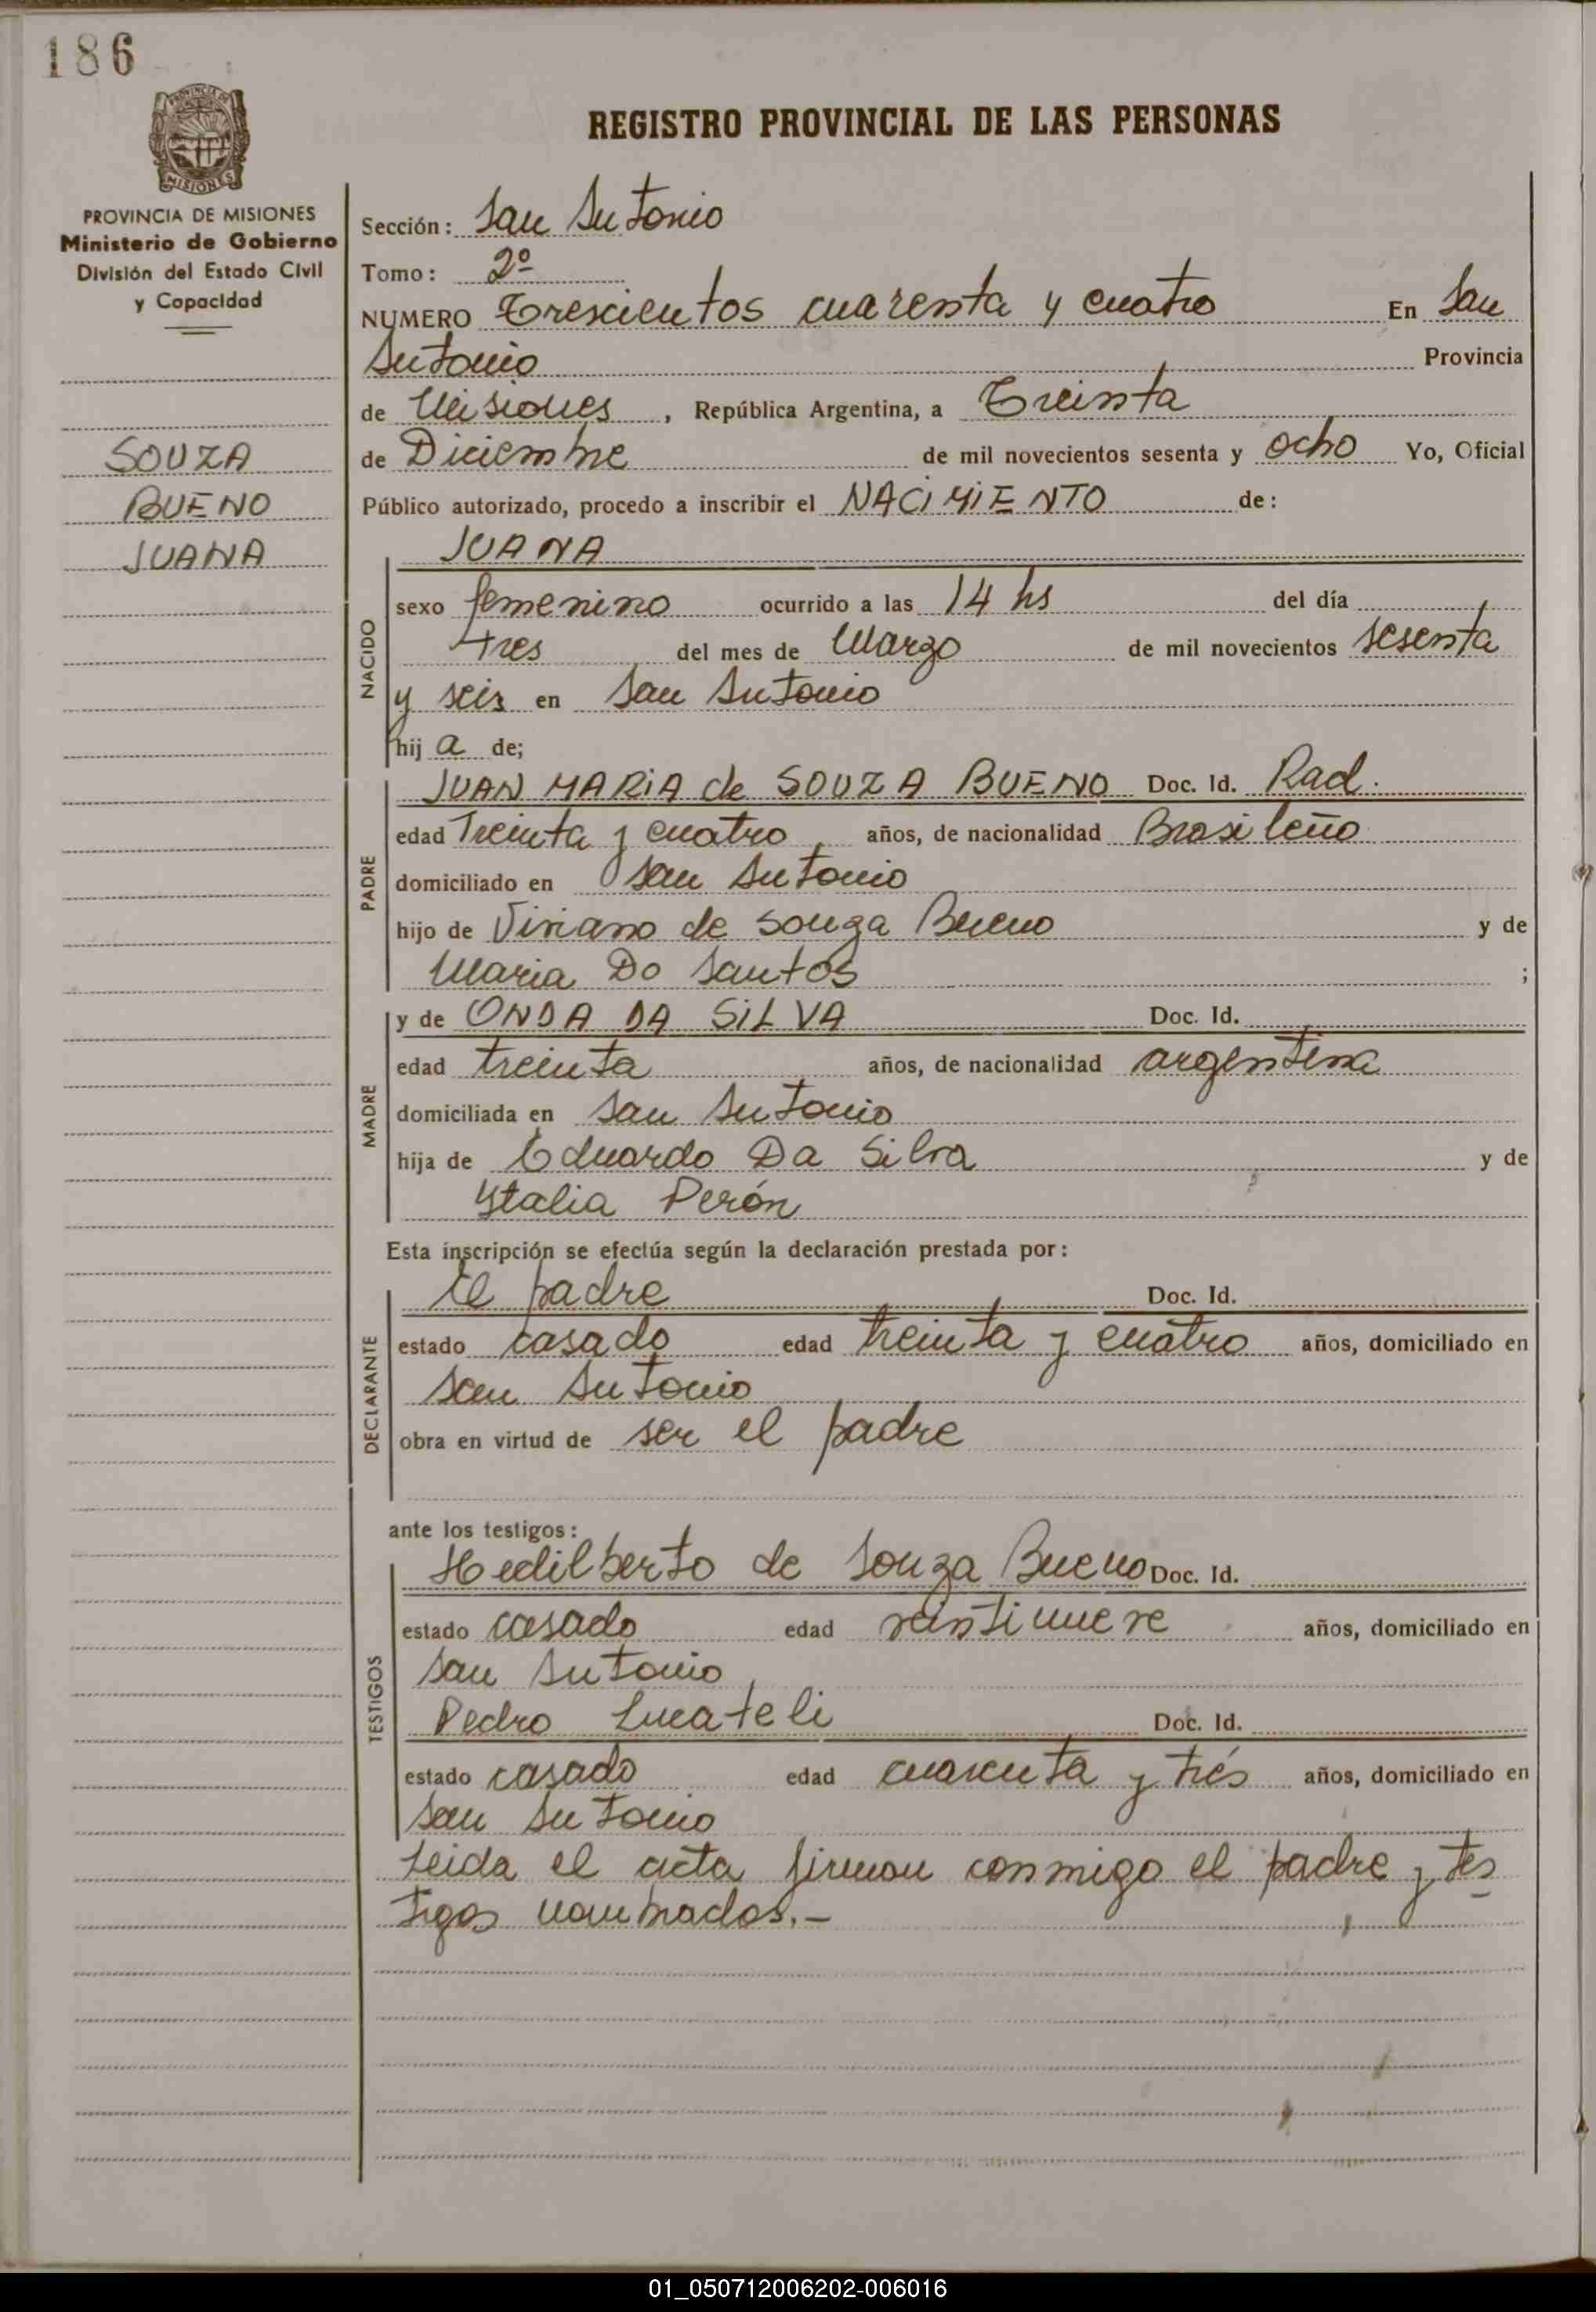 186
PROVINCIA DE MISIONES
Ministerio de Gobierno
División del Estado Civil
y Capacidad
SOUZA
BUENO
JUANA
REGISTRO PROVINCIAL DE LAS PERSONAS
Sección: San Antonio
Tomo: 2º
NUMERO Trescientos cuarenta y cuatro En San
Antonio Provincia
de Misiones, República Argentina, a Treinta
de Diciembre de mil novecientos sesenta y ocho Yo, Oficial
Público autorizado, procedo a inscribir el NACIMIENTO de:
JUANA
NACIDO
sexo femenino ocurrido a las 14 hs del día
tres del mes de Marzo de mil novecientos sesenta
y seis en San Antonio
hij a de;
PADRE
JUAN MARIA de SOUZA BUENO Doc. Id. Rad.
edad Treinta y cuatro años, de nacionalidad Brasileño
domiciliado en San Antonio
hijo de Viriano de Souza Bueno y de
Maria Do Santos ;
MADRE
y de ONDA DA SILVA Doc. Id.
edad treinta años, de nacionalidad argentina
domiciliada en San Antonio
hija de Eduardo Da Silva y de
Ytalia Perón
Esta inscripción se efectúa según la declaración prestada por:
DECLARANTE
El padre Doc. Id.
estado casado edad treinta y cuatro años, domiciliado en
San Antonio
obra en virtud de ser el padre
ante los testigos:
TESTIGOS
Hedilberto de Souza Bueno Doc. Id.
estado casado edad veintinueve años, domiciliado en
San Antonio
Pedro Lucateli Doc. Id.
estado casado edad cuarenta y trés años, domiciliado en
San Antonio
Leida el acta firman conmigo el padre y tes
tigos nombrados.-
01_050712006202-006016